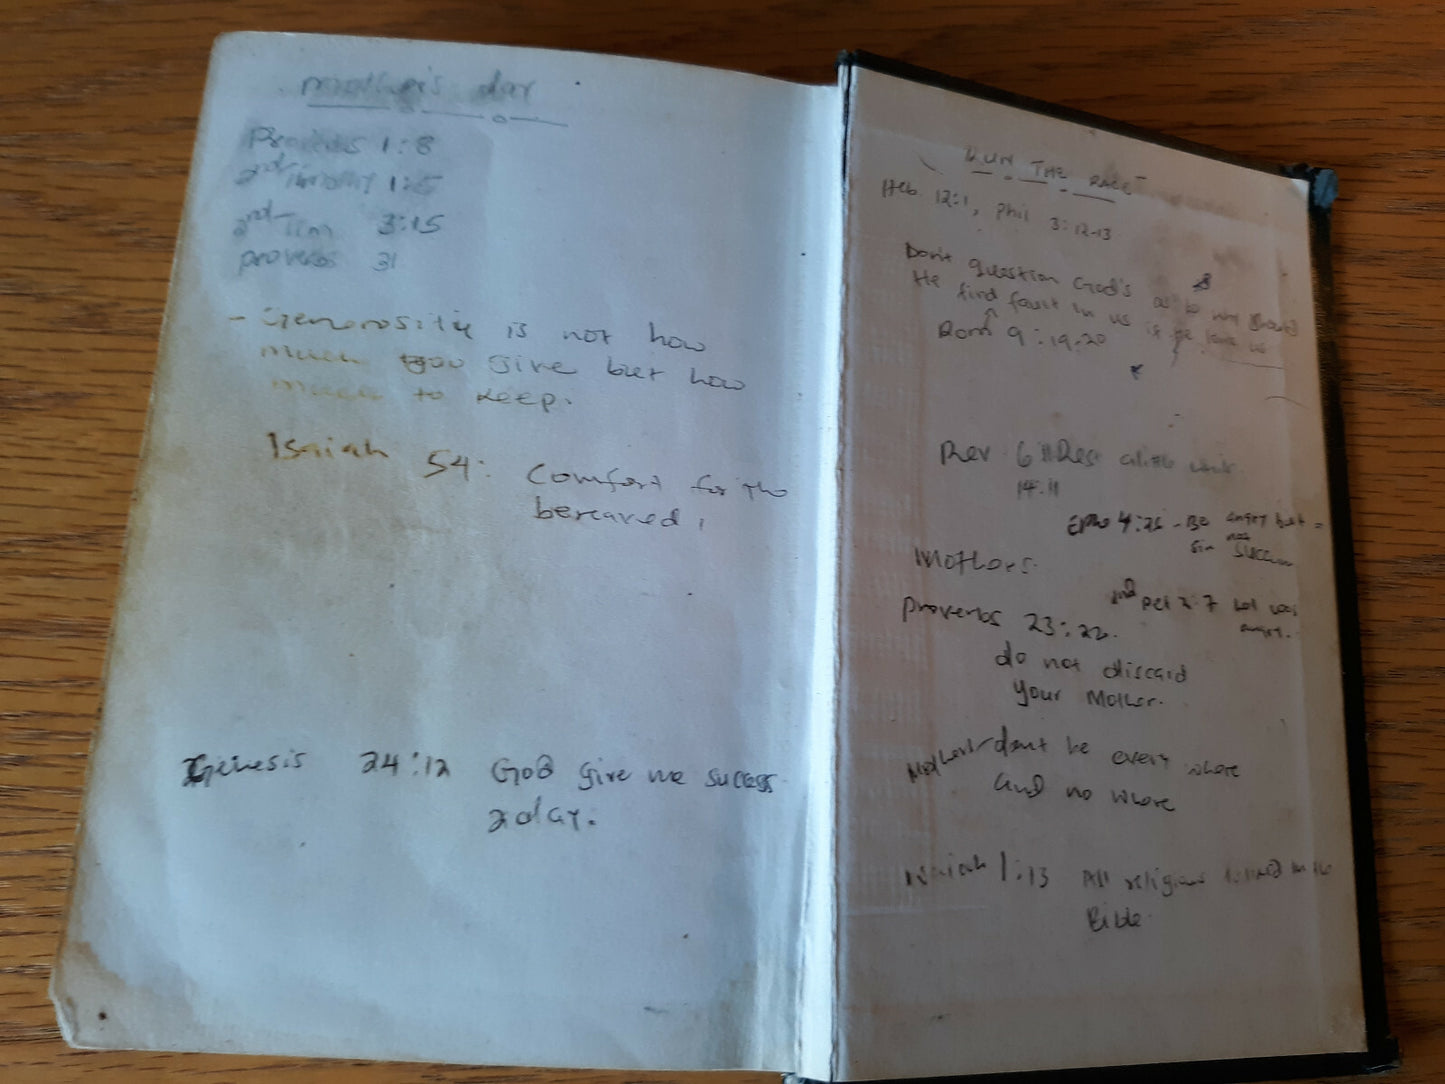 mother's day
Proverbs 1:8
2nd Timothy 1:5
2nd Tim 3:15
proverbs 31
- Generosity is not how
much you give but how
much to keep.
Isaiah 54: Comfort for the
bereaved,
Genesis 24:12 GOD give me success
2day.
RUN THE RACE
Heb. 12:1, Phil 3:12-13
Don't question God's as to why should
He find fault in us if He
Rom 9:19-20
Rev 6:11 Rest a little while
14:11
Eph 4:26 - Be angry but
not
sin
Mothers.
2nd Pet 2:7 Lot was
angry.
Proverbs 23:22.
do not discard
your Mother.
Mothers don't be every where
and no where
Isaiah 1:13 All religions in the
Bible.